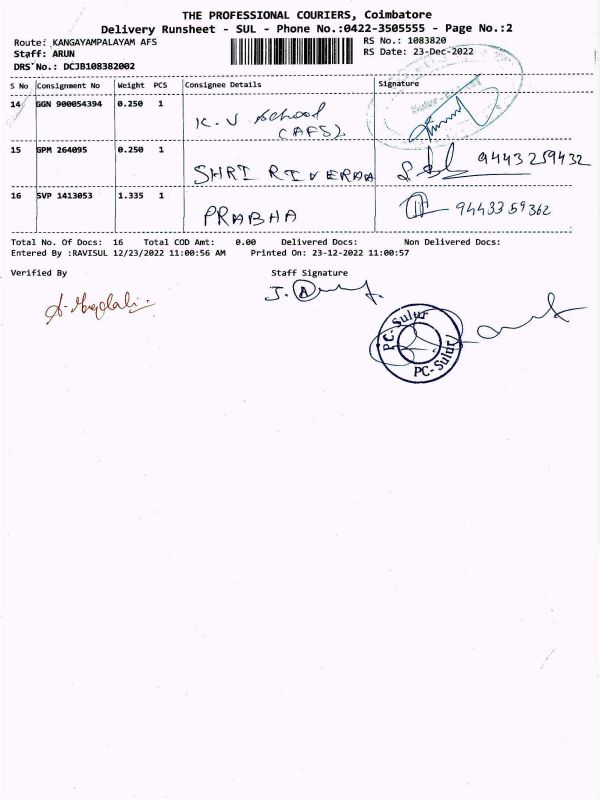 THE PROFESSIONAL COURIERS, Coimbatore
Delivery Runsheet - SUL - Phone No.:0422-3505555 - Page No.:2
Route: KANGAYAMPALAYAM AFS RS No.: 1083820
Staff: ARUN RS Date: 23-Dec-2022
DRS No.: DCJB108382002
S No Consignment No Weight PCS Consignee Details Signature
14 GGN 900054394 0.250 1 K. V School
(AFS).
15 GPM 264095 0.250 1 SHRI RIVERAA 9443259432
16 SVP 1413053 1.335 1 PRABHA 9443359362
Total No. Of Docs: 16 Total COD Amt: 0.00 Delivered Docs: Non Delivered Docs:
Entered By :RAVISUL 12/23/2022 11:00:56 AM Printed On: 23-12-2022 11:00:57
Verified By Staff Signature
PC-Sulur
PC-Sulur